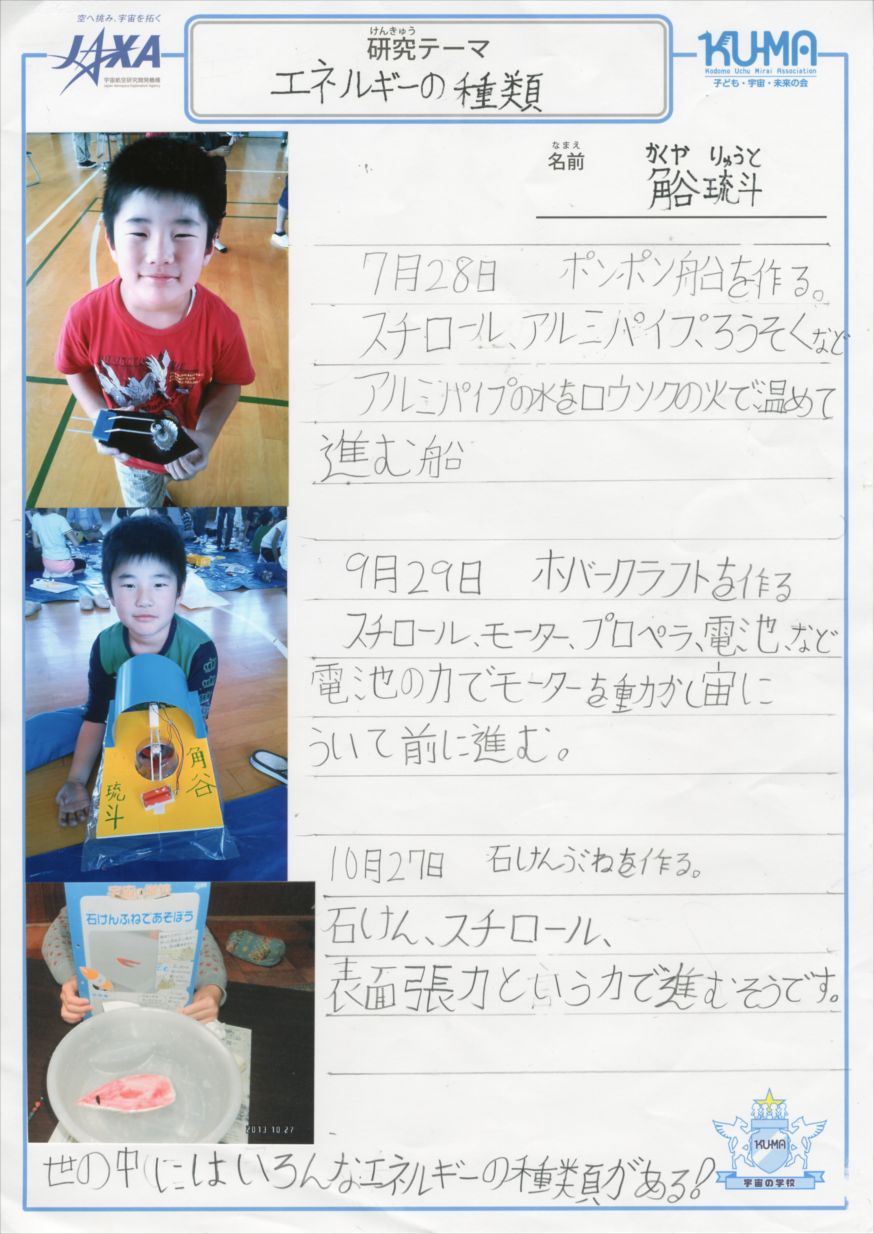 空へ挑み、宇宙を拓く
JAXA
宇宙航空研究開発機構
Japan Aerospace Exploration Agency
けんきゅう
研究テーマ
エネルギーの種類
KU-MA
Kodomo Uchu Mirai Association
子ども・宇宙・未来の会
なまえ
名前
かくや りゅうと
角谷琉斗
7月28日 ポンポン船を作る。
スチロール、アルミパイプ、ろうそくなど
アルミパイプの水をロウソクの火で温めて
進む船
9月29日 ホバークラフトを作る
スチロール、モーター、プロペラ、電池、など
電池の力でモーターを動かし宙に
ういて前に進む。
角谷
琉斗
10月27日 石けんぶねを作る。
石けん、スチロール、
表面張力という力で進むそうです。
石けんふねであそぼう
2013 10 27
世の中にはいろんなエネルギーの種類がある!
KU-MA
宇宙の学校